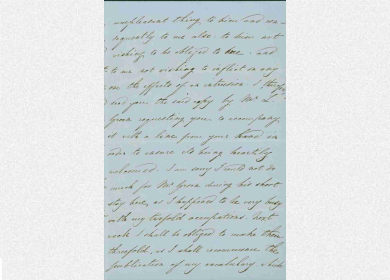 unpleasant thing to him and con-
sequently to me also to him not
wishing to be obliged to      and
to me not wishing to inflict on any
one the effects of an intrusion I
send you the said     by Mr L
      requesting you to accompany
it with a line from your hand in
order to ensure its being heartily
welcomed. I am sorry I could not do
much for Mr       during his short
stay here, as I happened to be very busy
with my twofold occupations. Next
week I shall be obliged to make them
threefold, as I shall recommence the
publication of my vocabulary which